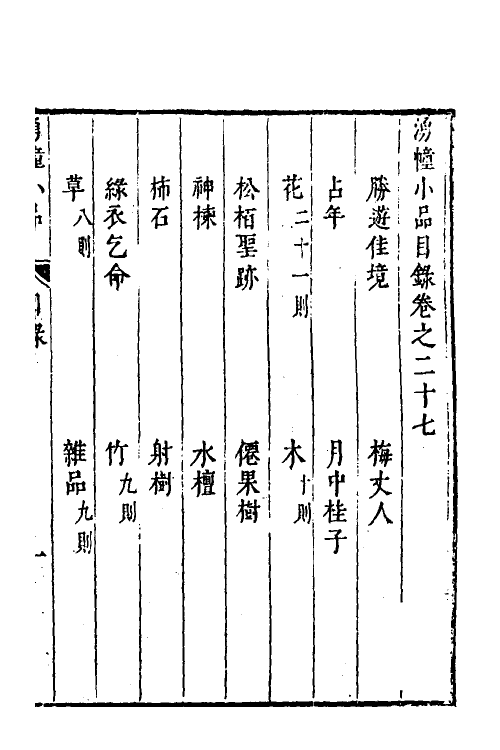 湧幢小品目錄卷之二十七
勝遊佳境 梅丈人
占年 月中桂子
花二十一則 木十則
松栢聖跡 僊果樹
神楝 水檀
柿石 射樹
綠衣乞命 竹九則
草八則 雜品九則
湧幢小品 目錄 一